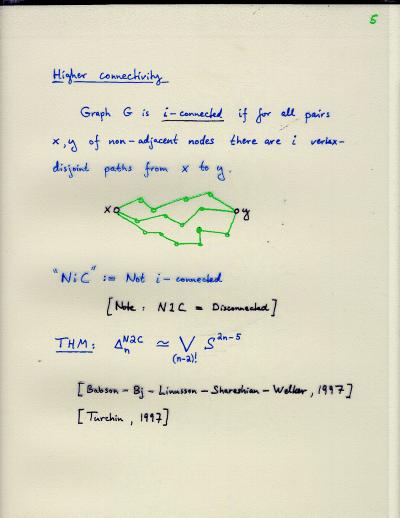 5
Higher connectivity
Graph G is i-connected if for all pairs
x, y of non-adjacent nodes there are i vertex-
disjoint paths from x to y.
x y
"NiC" := Not i-connected
[Note: N1C = Disconnected]
THM: Δₙᴺ²ᶜ ≃ ⋁₍ₙ₋₂₎! S²ⁿ⁻⁵
[Babson-Bj-Linusson-Shareshian-Welker, 1997]
[Turchin, 1997]